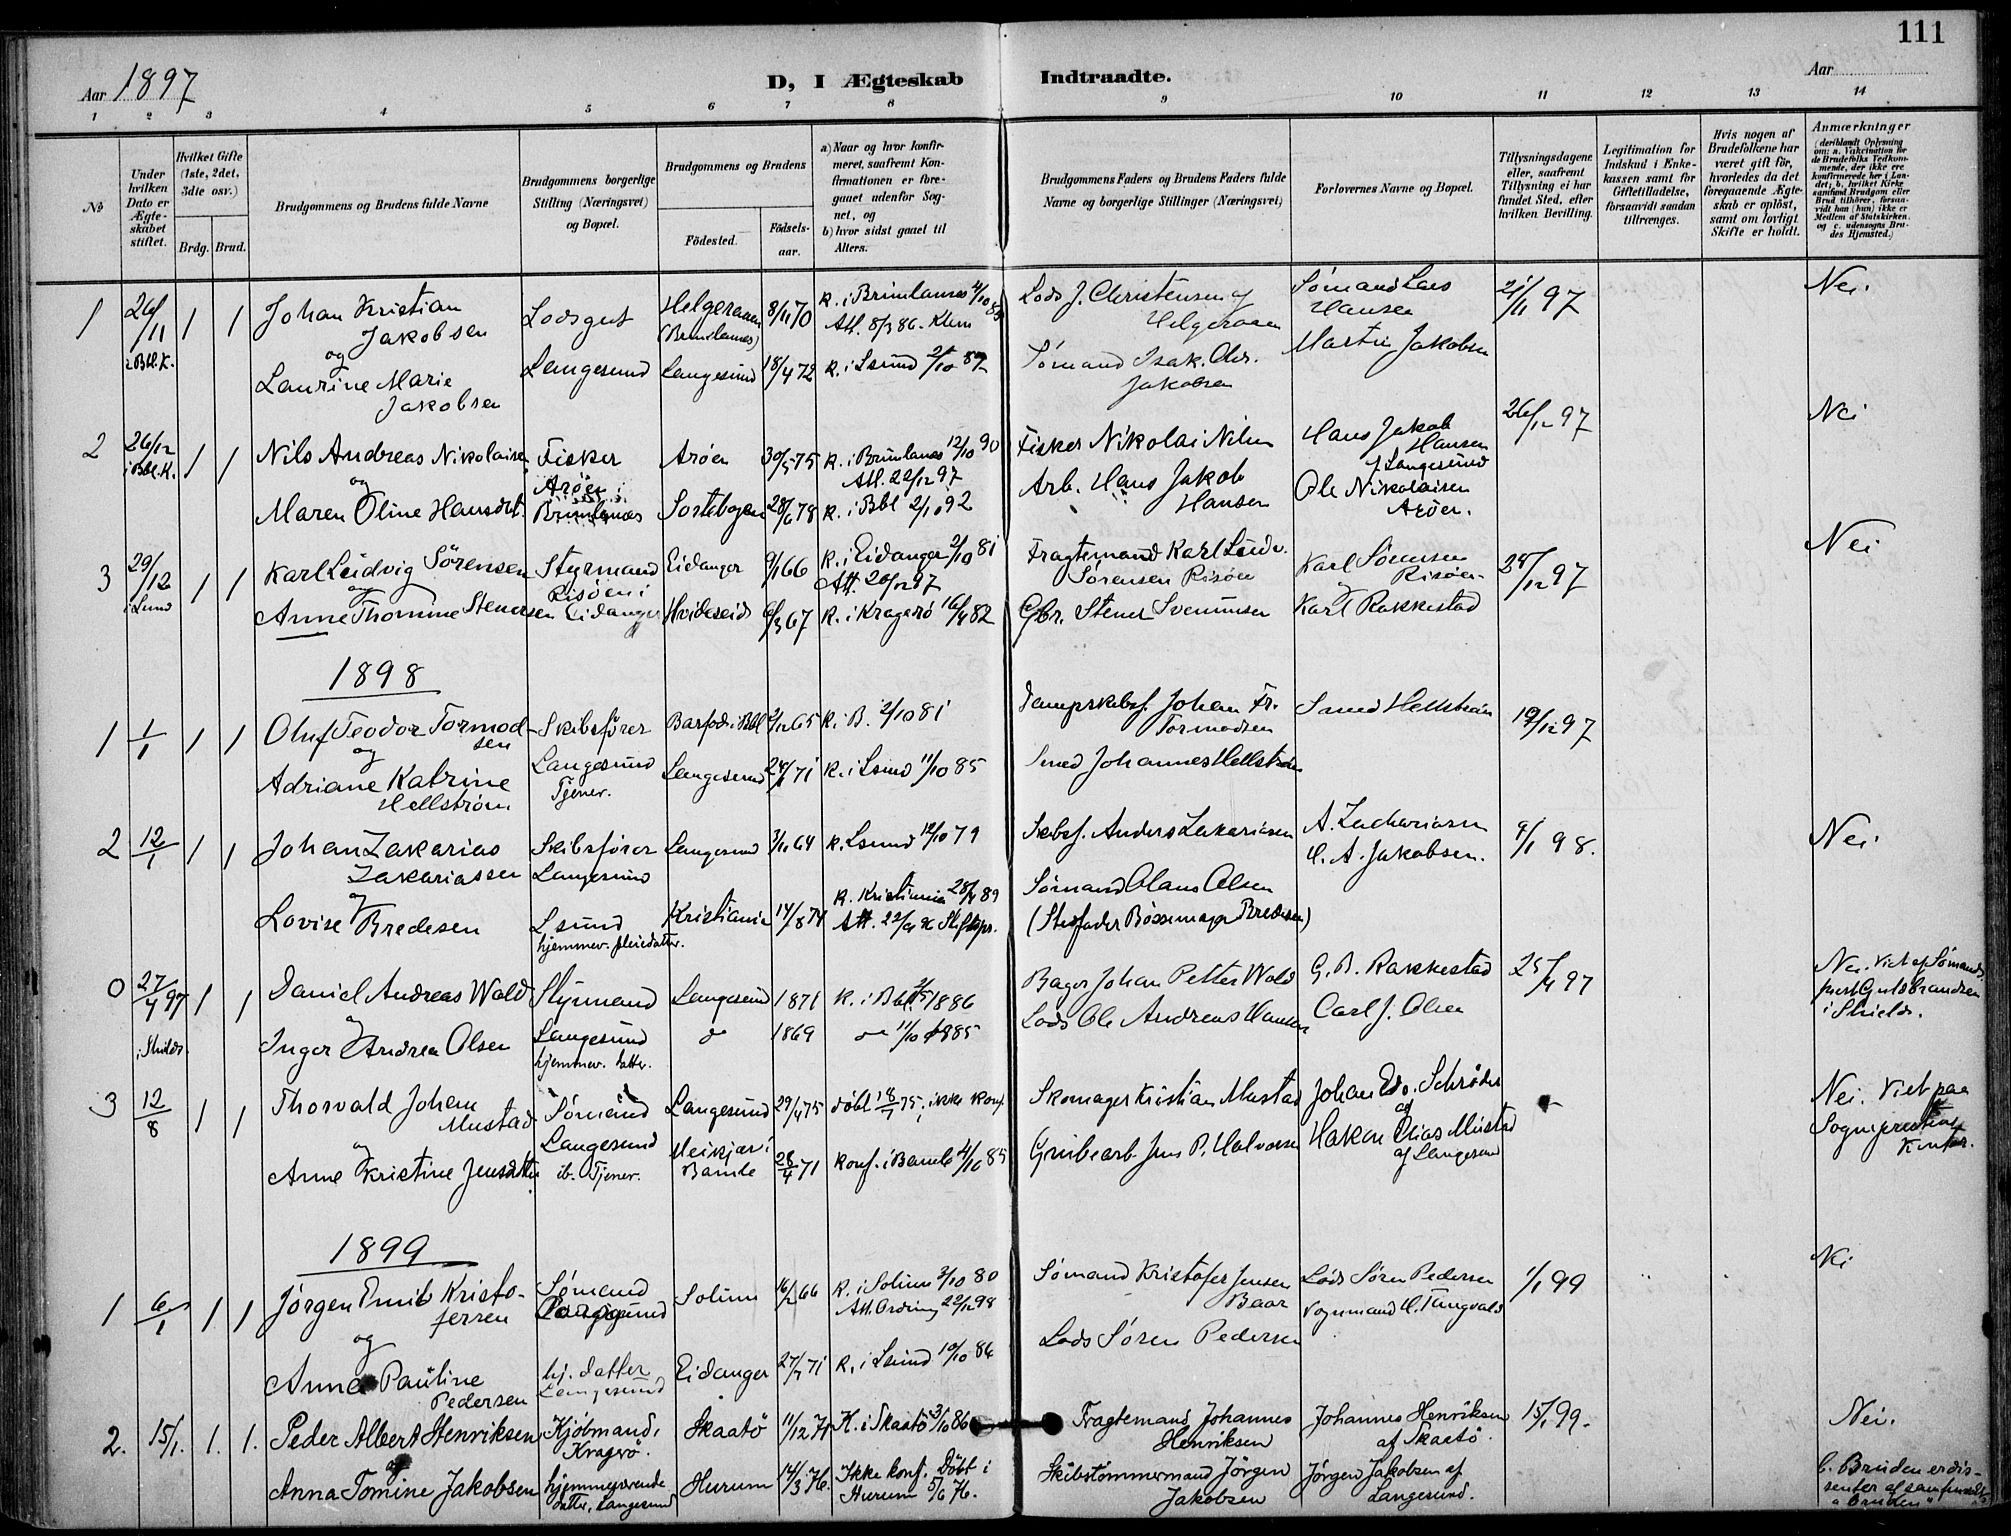 111
Aar 1897
D, I Ægteskab Indtraadte.
Aar
1 2 3 4 5 6 7 8 9 10 11 12 13 14
№
Under hvilken Dato er Ægteskabet stiftet.
Hvilket Gifte (1ste, 2det, 3dte osv.)
Brdg. Brud.
Brudgommens og Brudens fulde Navne
Brudgommens borgerlige Stilling (Næringsvei) og Bopæl.
Brudgommens og Brudens
Fødested.
Fødselsaar.
a) Naar og hvor konfirmeret, saafremt Konfirmationen er foregaaet udenfor Sognet, og
b) hvor sidst gaaet til Alters.
Brudgommens Faders og Brudens Faders fulde Navne og borgerlige Stillinger (Næringsvei)
Forlovernes Navne og Bopæl.
Tillysningsdagene eller, saafremt Tillysning ei har fundet Sted, efter hvilken Bevilling.
Legitimation for Indskud i Enkekassen samt for Giftetilladelse, forsaavidt saadan tiltrænges.
Hvis nogen af Brudefolkene har været gift før, hvorledes da det foregaaende Ægteskab er opløst, samt om lovligt Skifte er holdt.
Anmærkninger
(deriblandt Oplysning om: a. Vakcination for de Brudefolks Vedkommende, der ikke ere konfirmerede her i Landet; b. hvilket Kirkesamfund Brudgom eller Brud tilhører, forsaavidt han (hun) ikke er Medlem af Statskirken. og c. udensogns Brudes Hjemsted.)
1 26/11 1 1 Johan Kristian Jakobsen Lodsgut Helgeraaen (Brunlanes) 8/11 70 K. i Brunlanes Att. 8/3 86 Lods J. Christensen af Helgeraaen Sømand Lars Hansen 21/11 97 Nei.
i Bbl. K. og Laurine Marie Jakobsen Langesund Langesund 18/4 72 K. i Lsund 2/10 87 Sømand Isak Chr. Jakobsen Martin Jakobsen
2 26/12 1 1 Nils Andreas Nikolaisen Fisker Arøen 30/5 75 K. i Brunlanes 12/10 90 Att. 22/12 97 Fisker Nikolai Nilsen Hans Jakob Hansen f Langesund 26/12 97 Nei
i Bbl. K. og Maren Oline Hansdt. Arøen i Brunlanes 28/6 78 K. i Bbl 2/10 92 Arb. Hans Jakob Hansen Ole Nikolaisen Arøen.
3 29/12 1 1 Karl Ludvig Sörensen Styrmand Risöen i Eidanger Eidanger 9/1 66 K. i Eidanger 2/10 81 Att. 20/12 97 Fragtemand Karl Ludv. Sørensen Risøen Karl Sørensen Risøen 97 Nei
i Lsund og Anne Thomine Stenersen Hvideseid 67 K. i Kragerø 16/4 82 Gbr. Stener Svenumsen Karl Rakkestad
1898
1 1/1 1 1 Oluf Teodor Tormodsen Skibsfører Langesund Bbl 65 K. i B. 2/10 81 Dampskibsf. Johan Fr. Tormodsen Smed Hellstrøm 19/12 97
og Adriane Katrine Hellström Tjener. Langesund 24/ 71 K. i Lsund 11/10 85 Smed Johannes Hellstrøm
2 12/1 1 1 Johan Zakarias Zakariassen Skibsfører Langesund Langesund 64 K. Lsund 12/10 79 Skbsf. Anders Zakariasen A. Zachariasen H. A. Jakobsen. 9/1 98. Nei.
og Lovise Bredesen Lsund hjemmev. pleiedatter. Kristiania 14/8 74 K. Kristiania 28/4 89 Att. 22/ Stiftspr. Sømand Olaus Olsen (Stedfader Bøssemager Bredesen)
0 27/4 97 1 1 Daniel Andreas Wold Styrmand Langesund 1871 K. i Bbl 1886 Bager Johan Petter Wold G. B. Rakkestad 25/4 97 Nei. Viet af Sømandspræst Gulbrandsen i Shields.
i Shilds. og Inger Andrea Olsen Langesund hjemmev. datter. do 1869 11/10 1885 Lods Ole Andreas Hansen Carl J. Olsen
3 12/8 1 1 Thorvald Johan Mustad Sømand Langesund Langesund 29/4 75 döbt 18/7 75, ikke konf. Skomager Kristian Mustad Johan Edv. Schrøder Nei. Viet paa Sogneprestens Kontor.
og Anne Kristine Jensdatter ib. Tjener. Bamle 28/4 71 konf. i Bamle 4/10 85 Grubearb. Jens P. Halvorsen af Hakon Elias Mustad af Langesund
1899
1 6/1 1 1 Jørgen Emil Kristofersen Sømand Langesund Solum 16/2 66 K. i Solum 3/10 80 Att. 22/12 98 Sømand Kristofer Jensen Baar Lods Søren Pedersen 1/1 99 Nei
og Anna Pauline Pedersen hj. datter Langesund Eidanger 27/7 71 K. i Lsund 10/10 86 Lods Søren Pedersen Vognmand H. Tangvald
2. 15/1. 1. 1. Peder Albert Henriksen Kjöbmand, Kragerö. Skaatö 11/12 71 K. i Skaatö 3/10 86 Fragtemand Johannes Henriksen Johannes Henriksen af Skaatö. 15/1 99. Nei.
og Anna Tomine Jakobsen hjemmeværende datter, Langesund Hurum 14/3 76. Ikke konf. Döbt i Hurum 5/6 76. Skibstömmermand Jörgen Jakobsen Jörgen Jakobsen af Langesund. Bruden er dissenter af samfundet